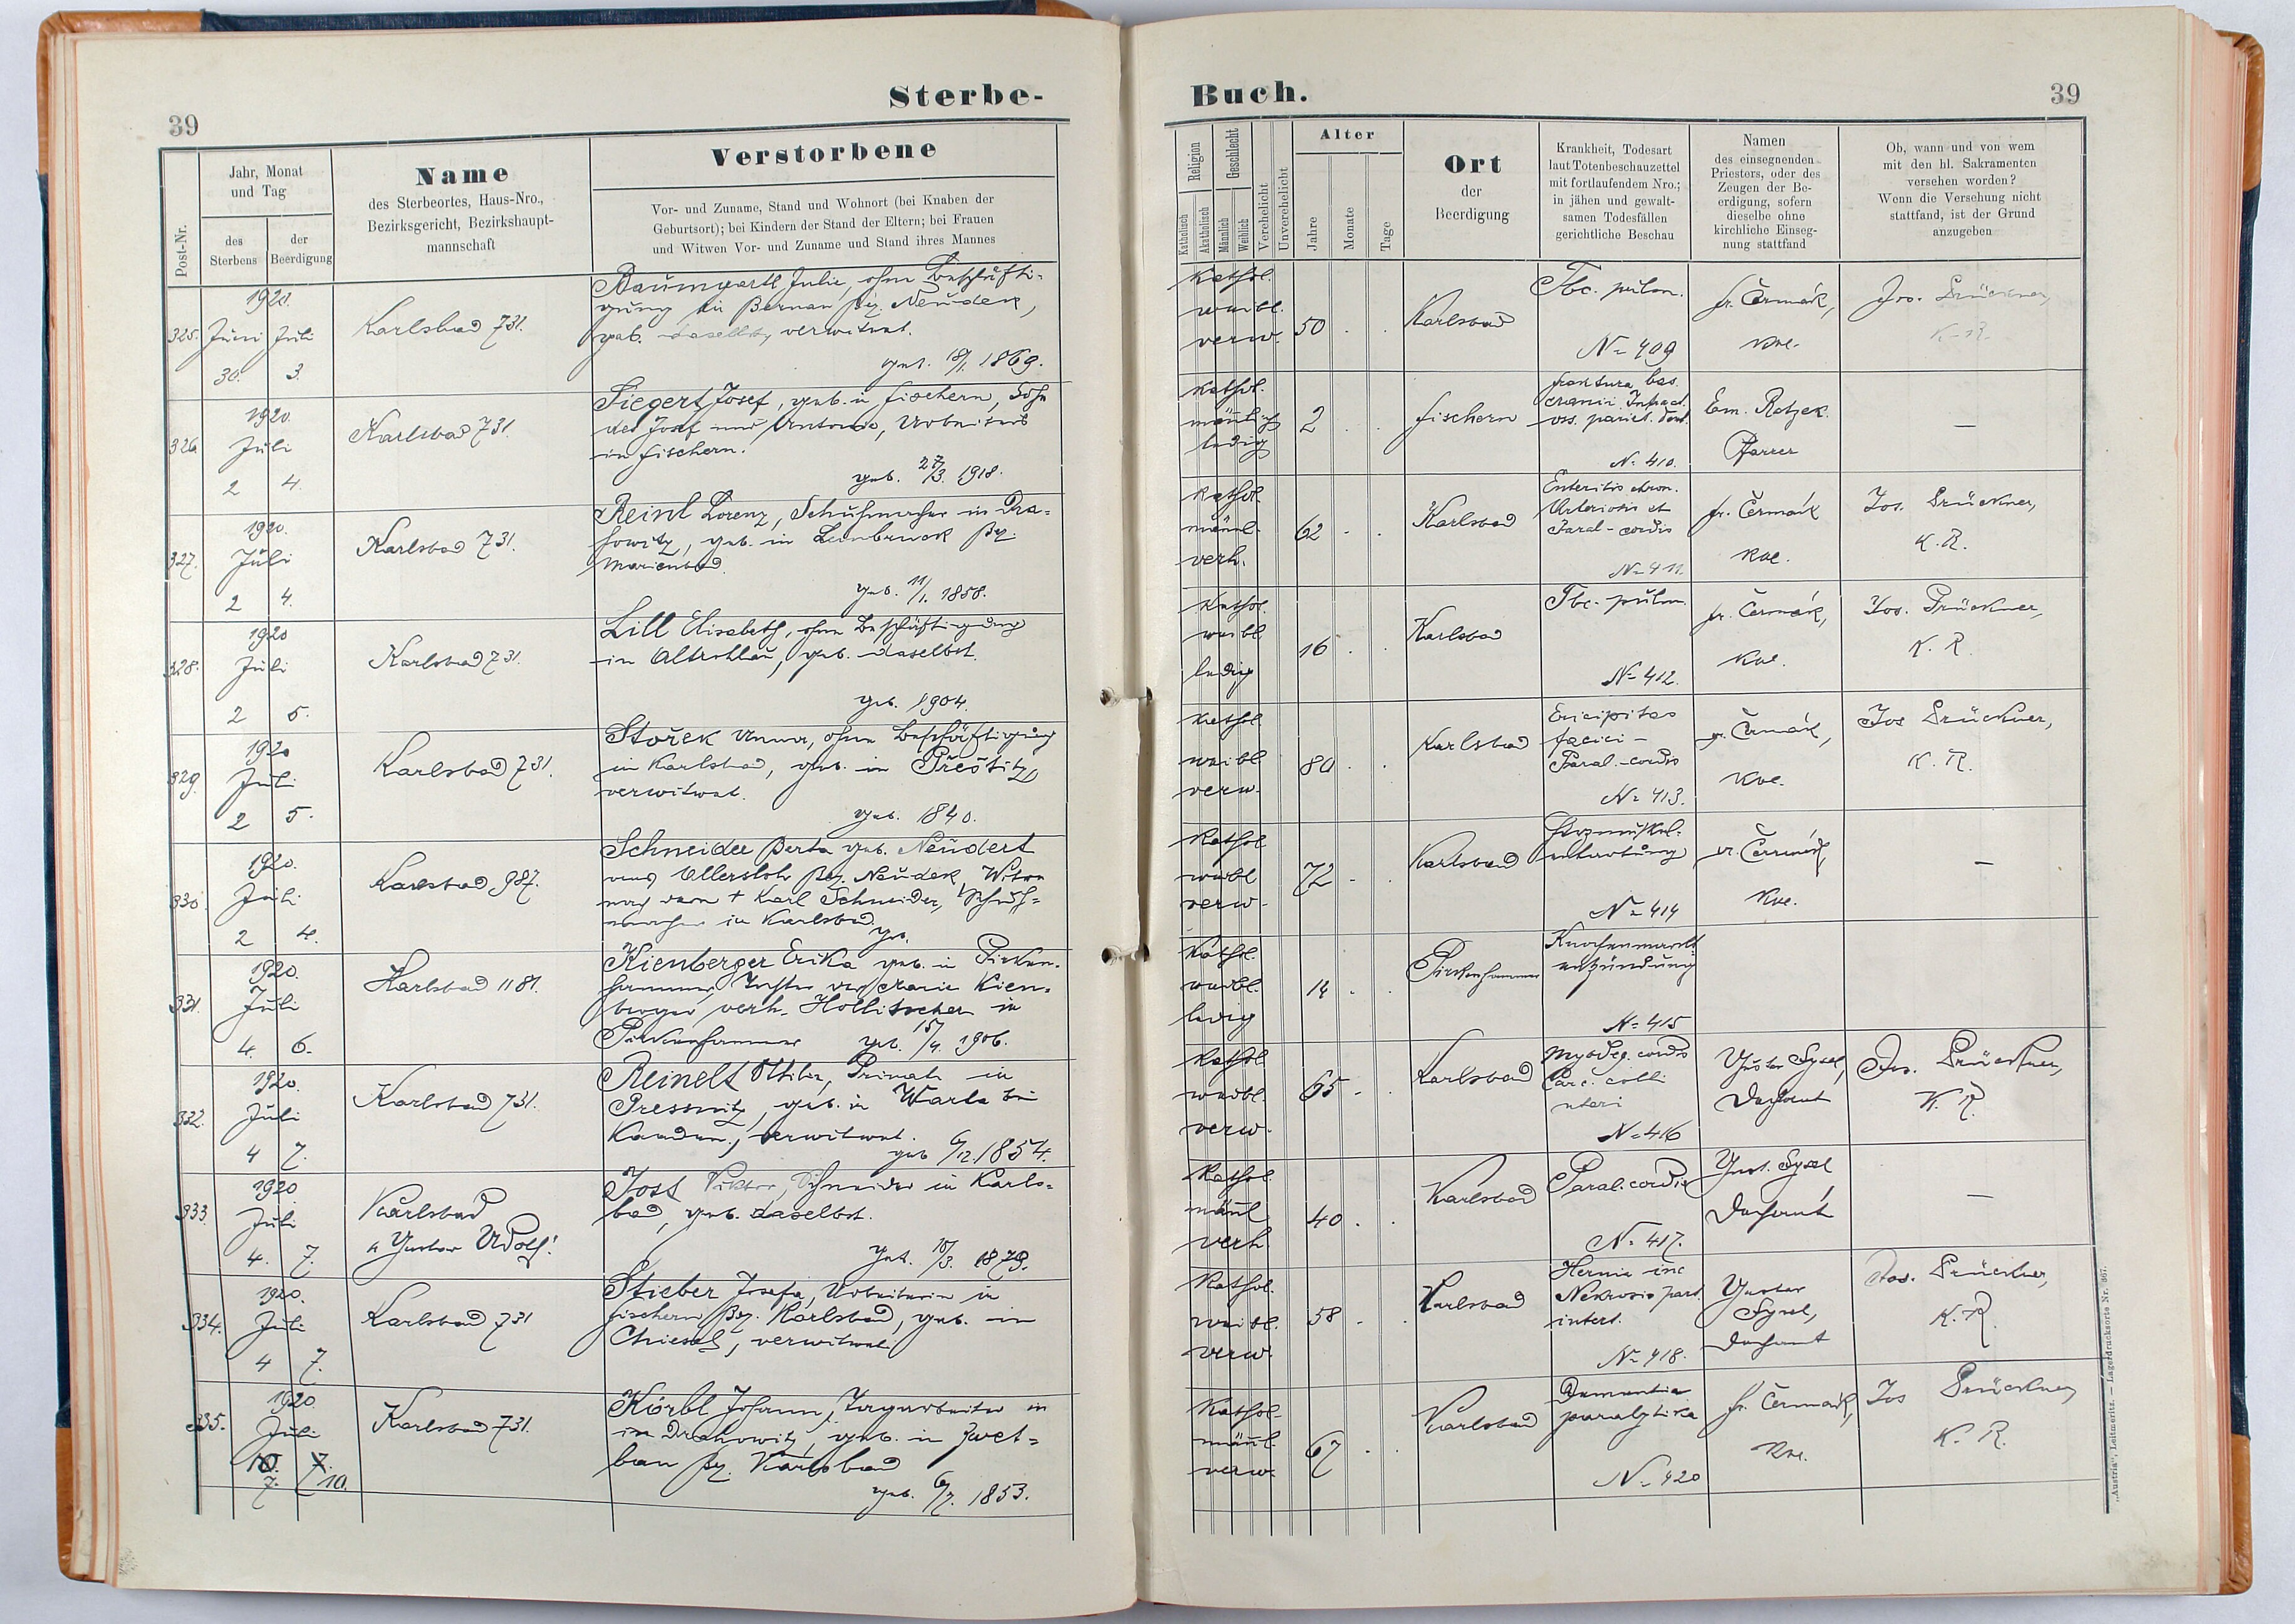 Sterbe-
39
Post-Nr.
Jahr, Monat
und Tag
des
Sterbens
der
Beerdigung
Name
des Sterbeortes, Haus-Nro.,
Bezirksgericht, Bezirkshaupt-
mannschaft
Verstorbene
Vor- und Zuname, Stand und Wohnort (bei Knaben der
Geburtsort); bei Kindern der Stand der Eltern; bei Frauen
und Witwen Vor- und Zuname und Stand ihres Mannes
325.
1920.
Juni Juli
30. 3.
Karlsbad 731.
Baumgartl Julie, ohne Beschäfti-
gung in Bernau Bez. Neudek,
geb. daselbst, verwitwet.
geb. 18/1. 1869.
326
1920.
Juli
2 4.
Karlsbad 731.
Siegert Josef, geb. in Fischern, Sohn
des Josef und Antonie, Arbeiters
in Fischern.
geb. 27/3. 1918.
327.
1920.
Juli
2 4.
Karlsbad 731.
Reinl Lorenz, Schuhmacher in Dra-
howitz, geb. in Bez.
Marienbad.
geb. 11/1. 1858.
328.
1920
Juli
2 5.
Karlsbad 731.
Lill Elisabeth, ohne Beschäftigung
in Altrohlau, geb. daselbst.
geb. 1904.
329.
1920
Juli
2 5.
Karlsbad 731.
Stořek Anna, ohne Beschäftigung
in Karlsbad, geb. in Přeštitz,
verwitwet.
geb. 1840.
330.
1920.
Juli
2 4.
Karlsbad 987.
Schneider Berta geb. Neudert
aus Ullersloh Bez. Neudek, Witwe
nach dem † Karl Schneider, Schuh-
macher in Karlsbad
geb.
331.
1920.
Juli
4. 6.
Karlsbad 1181.
Kienberger Erika geb. in Pirken-
hammer, Tochter der Marie Kien-
berger verh. Hollitscher in
Pirkenhammer geb. 15/4. 1906.
332.
1920.
Juli
4 7.
Karlsbad 731.
Reinelt Ottilie, Private in
Pressnitz, geb. in Warta bei
Kaaden, verwitwet.
geb 6/12. 1854.
333.
1920
Juli
4. 7.
Karlsbad
Gustav Adolf
Jost Viktor, Schneider in Karls-
bad, geb. daselbst.
geb. 10/3. 1879.
334.
1920.
Juli
4 7.
Karlsbad 731
Stieber Josefa, Arbeiterin in
Fischern Bez. Karlsbad, geb. in
Chiesch, verwitwet.
335.
1920
Juli
10. 7.
7. 10.
Karlsbad 731.
Körbl Johann, Tagarbeiter in
in Drahowitz, geb. in Zwet-
bau Bez. Karlsbad
geb. 6/7. 1853.
Buch.
39
Religion
Katholisch
Akatholisch
Geschlecht
Männlich
Weiblich
Verehelicht
Unverehelicht
Alter
Jahre
Monate
Tage
Ort
der
Beerdigung
Krankheit, Todesart
laut Totenbeschauzettel
mit fortlaufendem Nro.;
in jähen und gewalt-
samen Todesfällen
gerichtliche Beschau
Namen
des einsegnenden
Priesters, oder des
Zeugen der Be-
erdigung, sofern
dieselbe ohne
kirchliche Einseg-
nung stattfand
Ob, wann und von wem
mit den hl. Sakramenten
versehen worden?
Wenn die Versehung nicht
stattfand, ist der Grund
anzugeben
Kathol.
weibl.
verw.
50
Karlsbad
Tbc. pulm.
N= 409
fr. Čermák,
Jos. Brückner,
K. R.
Kathol.
männlich
ledig
2
Fischern
fraktura bas.
cranii. Impact.
oss. pariet. dext.
N. 410.
Em. Ratzek
Pfarrer
—
Kathol.
männl.
verh.
62
Karlsbad
Enteritis chron.
Arteriosis et
Paral-cordis
N= 411.
fr. Čermák
Jos. Brückner,
K. R.
Kathol.
weibl
ledig
16
Karlsbad
Tbc-pulm.
N= 412.
fr. Čermák,
Jos. Brückner,
K. R.
Kathol
weibl
verw.
80
Karlsbad
faciei-
Paral.-cordis
N= 413.
fr. Čermák,
Jos Brückner,
K. R.
Kathol
weibl
verw.
72
Karlsbad
Herzmuskel-
entartung
N= 414
fr. Čermák,
—
Kathol.
weibl.
ledig
14
Pirkenhammer
Knochenmark
entzündung
N= 415
Kathol
weibl.
verw.
65
Karlsbad
Myodeg. cordis
Carc. colli
uteri
N= 416
Gustav Sysel,
Dechant
Jos. Brückner,
K. R.
Kathol.
männl
verh.
40
Karlsbad
Paral. cordis
N. 417.
Gust. Sysel
Dechant
—
Kathol.
weibl.
verw.
58
Karlsbad
Hernia inc
Nekrosis part.
intest.
N= 418.
Gustav
Sysel,
Dechant
Jos. Brückner,
K. R.
Kathol-
männl.
verw.
67
Karlsbad
Dementia
paralytika
N. 420
fr. Čermák,
Jos Brückner,
K. R.
„Austria", Leitmeritz. — Lagerdrucksorte Nr. 867.